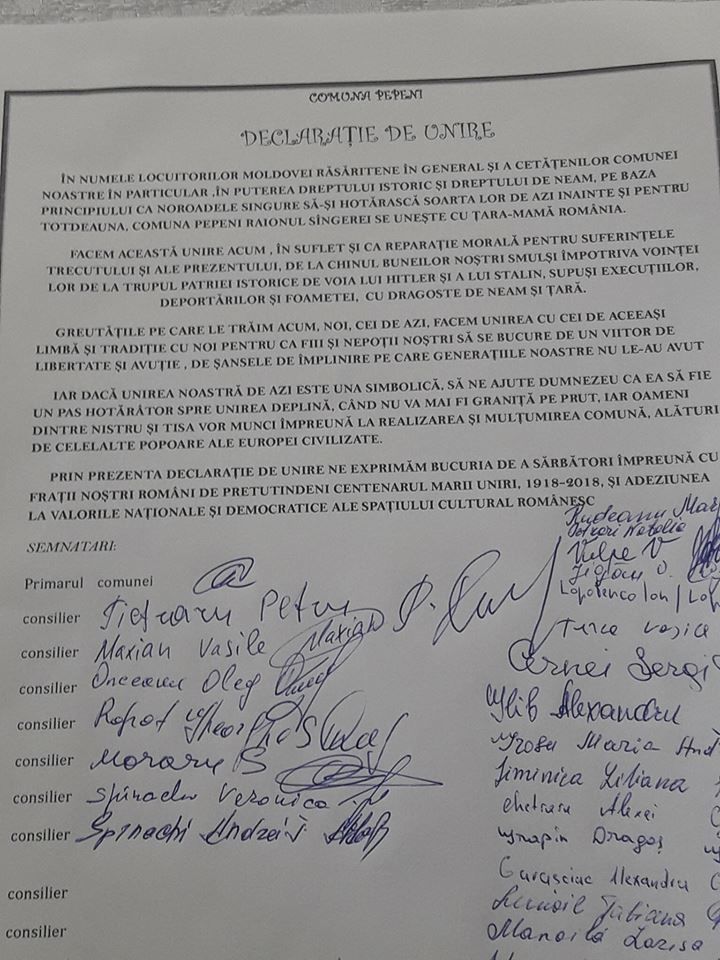 COMUNA PEPENI
DECLARAȚIE DE UNIRE
ÎN NUMELE LOCUITORILOR MOLDOVEI RĂSĂRITENE ÎN GENERAL ȘI A CETĂȚENILOR COMUNEI
NOASTRE ÎN PARTICULAR ,ÎN PUTEREA DREPTULUI ISTORIC ȘI DREPTULUI DE NEAM, PE BAZA
PRINCIPIULUI CA NOROADELE SINGURE SĂ-ȘI HOTĂRASCĂ SOARTA LOR DE AZI INAINTE ȘI PENTRU
TOTDEAUNA, COMUNA PEPENI RAIONUL SÎNGEREI SE UNEȘTE CU ȚARA-MAMĂ ROMÂNIA.
FACEM ACEASTĂ UNIRE ACUM , ÎN SUFLET ȘI CA REPARAȚIE MORALĂ PENTRU SUFERINȚELE
TRECUTULUI ȘI ALE PREZENTULUI, DE LA CHINUL BUNEILOR NOȘTRI SMULȘI ÎMPOTRIVA VOINȚEI
LOR DE LA TRUPUL PATRIEI ISTORICE DE VOIA LUI HITLER ȘI A LUI STALIN, SUPUȘI EXECUȚIILOR,
DEPORTĂRILOR ȘI FOAMETEI, CU DRAGOSTE DE NEAM ȘI ȚARĂ.
GREUTĂȚILE PE CARE LE TRĂIM ACUM, NOI, CEI DE AZI, FACEM UNIREA CU CEI DE ACEEAȘI
LIMBĂ ȘI TRADIȚIE CU NOI PENTRU CA FIII ȘI NEPOȚII NOȘTRI SĂ SE BUCURE DE UN VIITOR DE
LIBERTATE ȘI AVUȚIE , DE ȘANSELE DE ÎMPLINIRE PE CARE GENERAȚIILE NOASTRE NU LE-AU AVUT
IAR DACĂ UNIREA NOASTRĂ DE AZI ESTE UNA SIMBOLICĂ, SĂ NE AJUTE DUMNEZEU CA EA SĂ FIE
UN PAS HOTĂRÂTOR SPRE UNIREA DEPLINĂ, CÂND NU VA MAI FI GRANIȚĂ PE PRUT, IAR OAMENI
DINTRE NISTRU ȘI TISA VOR MUNCI ÎMPREUNĂ LA REALIZAREA ȘI MULȚUMIREA COMUNĂ, ALĂTURI
DE CELELALTE POPOARE ALE EUROPEI CIVILIZATE.
PRIN PREZENTA DECLARAȚIE DE UNIRE NE EXPRIMĂM BUCURIA DE A SĂRBĂTORI ÎMPREUNĂ CU
FRAȚII NOȘTRI ROMÂNI DE PRETUTINDENI CENTENARUL MARII UNIRI, 1918-2018, ȘI ADEZIUNEA
LA VALORILE NAȚIONALE ȘI DEMOCRATICE ALE SPAȚIULUI CULTURAL ROMÂNESC
SEMNATARI:
Primarul comunei
consilier Petru
consilier Maxian Vasile Maxian
consilier Oleg
consilier Gheorghe
consilier Moraru S
consilier Spinachi Veronica
consilier Spinachi Andrei
consilier
consilier
Rudeanu
Natalia
Vulpe V
Lopotenco Ion
Turca Vasile
Cernei
Glib Alexandru
Grosu Maria
Siminica Liliana
Chetraru Alexei
Dragoș
Alexandru
Tatiana
Manoilă Larisa